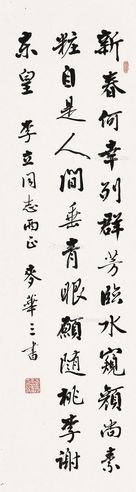 新春何幸列群芳臨水窺顏尚素
粧自是人間垂青眼願随桃李謝
东皇 李立同志两正 麥華三書